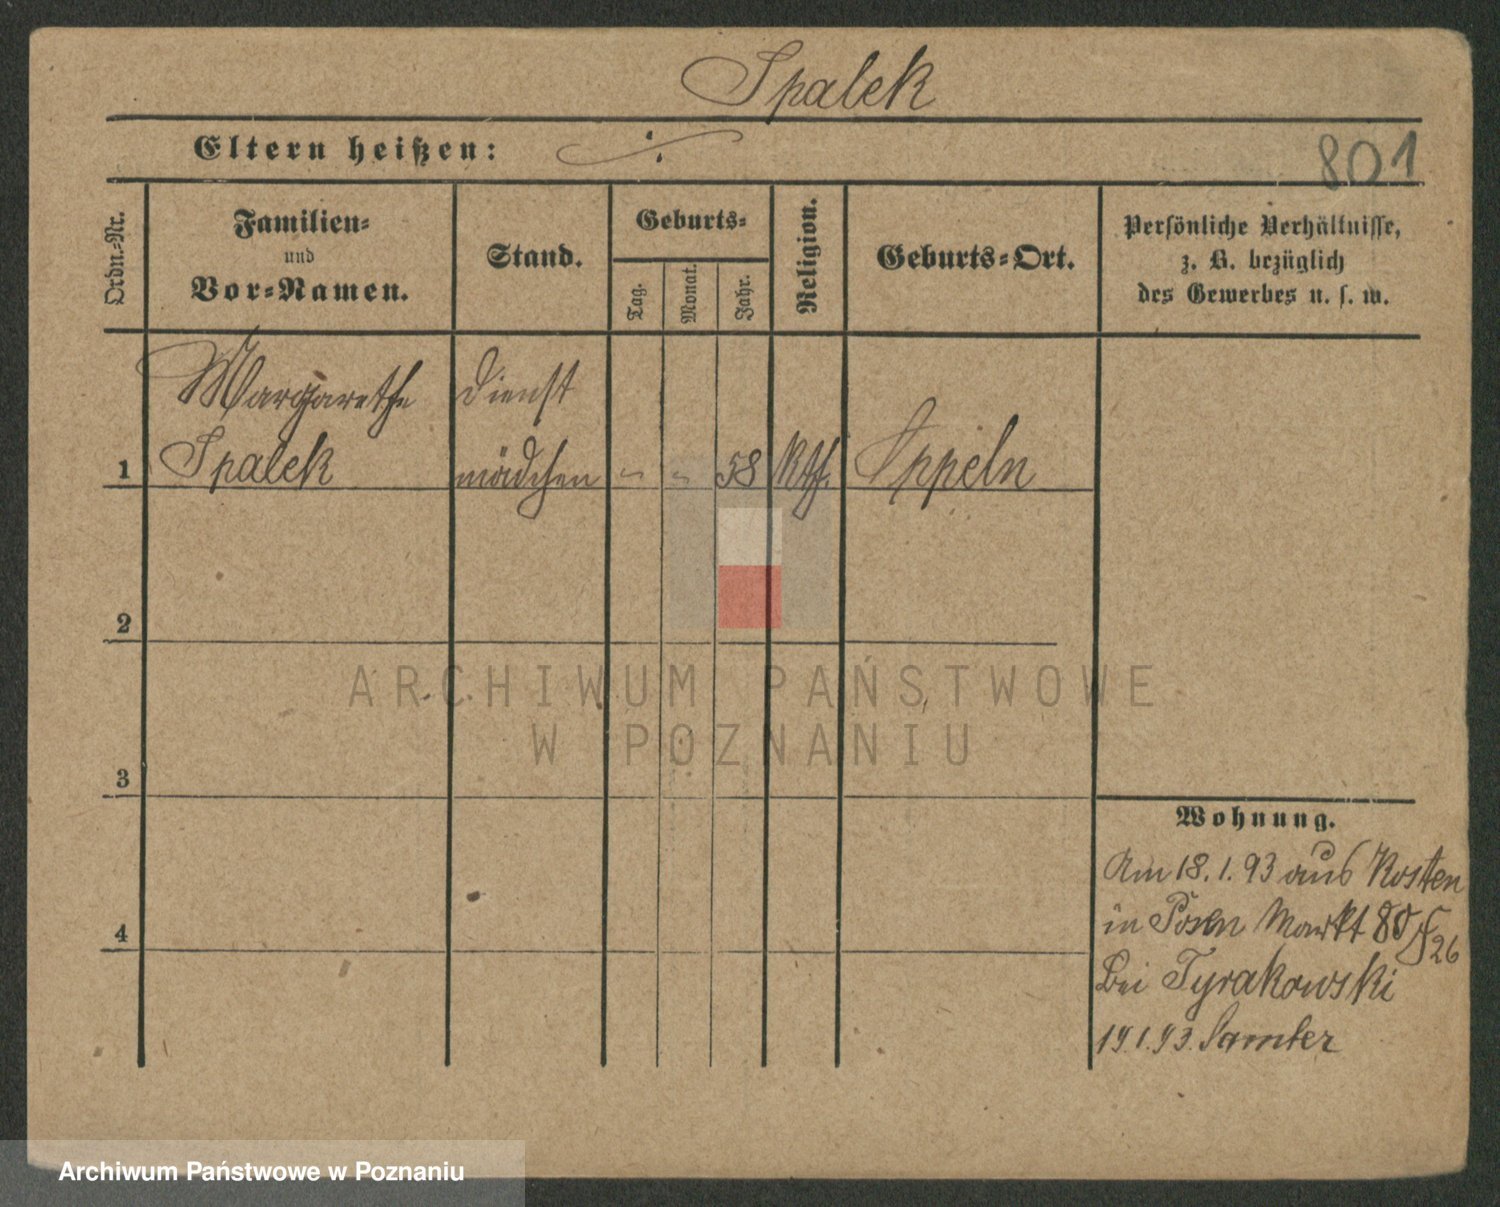 Spalek
Eltern heißen: ÷
801
Ordn.-Nr.
Familien-
und
Vor-Namen.
Stand.
Geburts-
Tag.
Monat.
Jahr.
Religion.
Geburts-Ort.
Persönliche Verhältnisse,
z. B. bezüglich
des Gewerbes u. s. w.
Margarethe
Spalek
Dienst
mädchen
1
58
Kth.
Oppeln
2
3
4
ARCHIWUM PAŃSTWOWE
W POZNANIU
Wohnung.
Am 18.1.93 aus Kosten
in Posen Markt 80
26
bei Tyrakowski
19.1.93. Samter
Archiwum Państwowe w Poznaniu